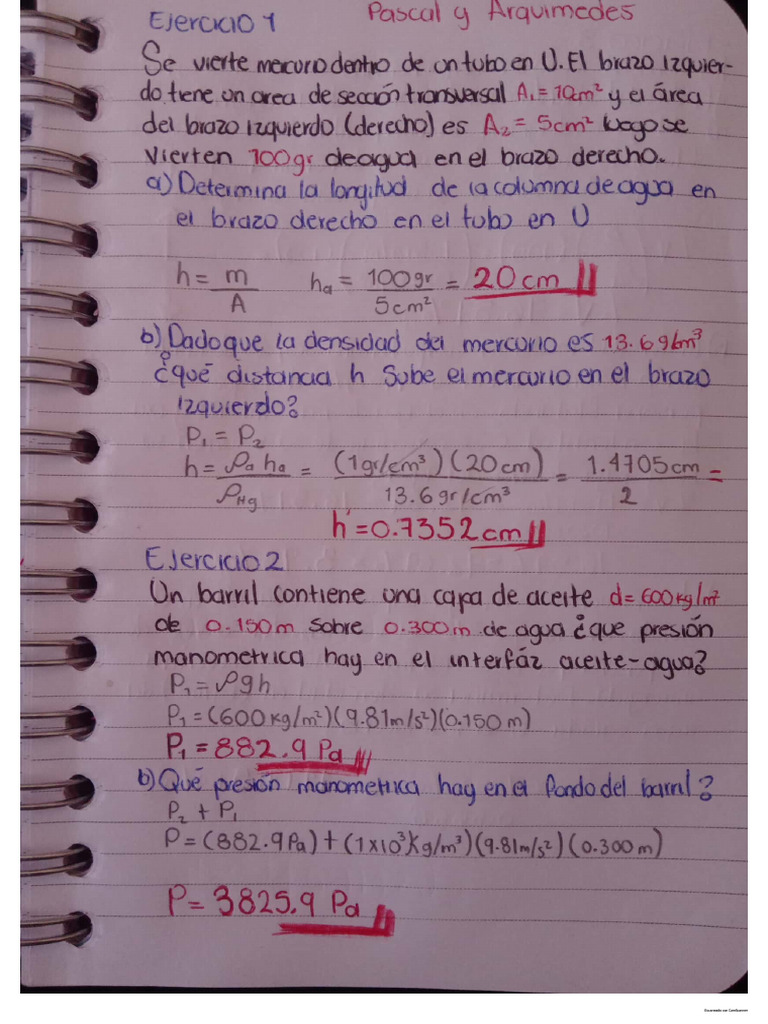 Ejercicio 1 Pascal y Arquimedes
Se vierte mercurio dentro de un tubo en U. El brazo izquier-
do tiene un area de sección transversal A₁=10m² y el área
del brazo izquierdo (derecho) es A₂=5cm² luego se
vierten 100gr de agua en el brazo derecho.
a) Determina la longitud de la columna de agua en
el brazo derecho en el tubo en U
h = m/A hₐ = 100gr/5cm² = 20cm
b) Dado que la densidad del mercurio es 13.6g/m³
¿qué distancia h sube el mercurio en el brazo
izquierdo?
P₁ = P₂
h = ρₐ hₐ/ρHg = (1gr/cm³)(20cm)/13.6gr/cm³ = 1.4705cm/2 =
h'=0.7352cm
Ejercicio 2
Un barril contiene una capa de aceite d=600kg/m²
de 0.150m sobre 0.300m de agua ¿que presión
manometrica hay en el interfáz aceite-agua?
P₁=ρgh
P₁=(600kg/m²)(9.81m/s²)(0.150m)
P₁=882.9 Pa
b) Qué presión manometrica hay en el fondo del barril?
P₂ + P₁
P=(882.9Pa)+(1x10³)Kg/m³)(9.81m/s²)(0.300m)
P= 3825.9 Pa
Escaneado con CamScanner